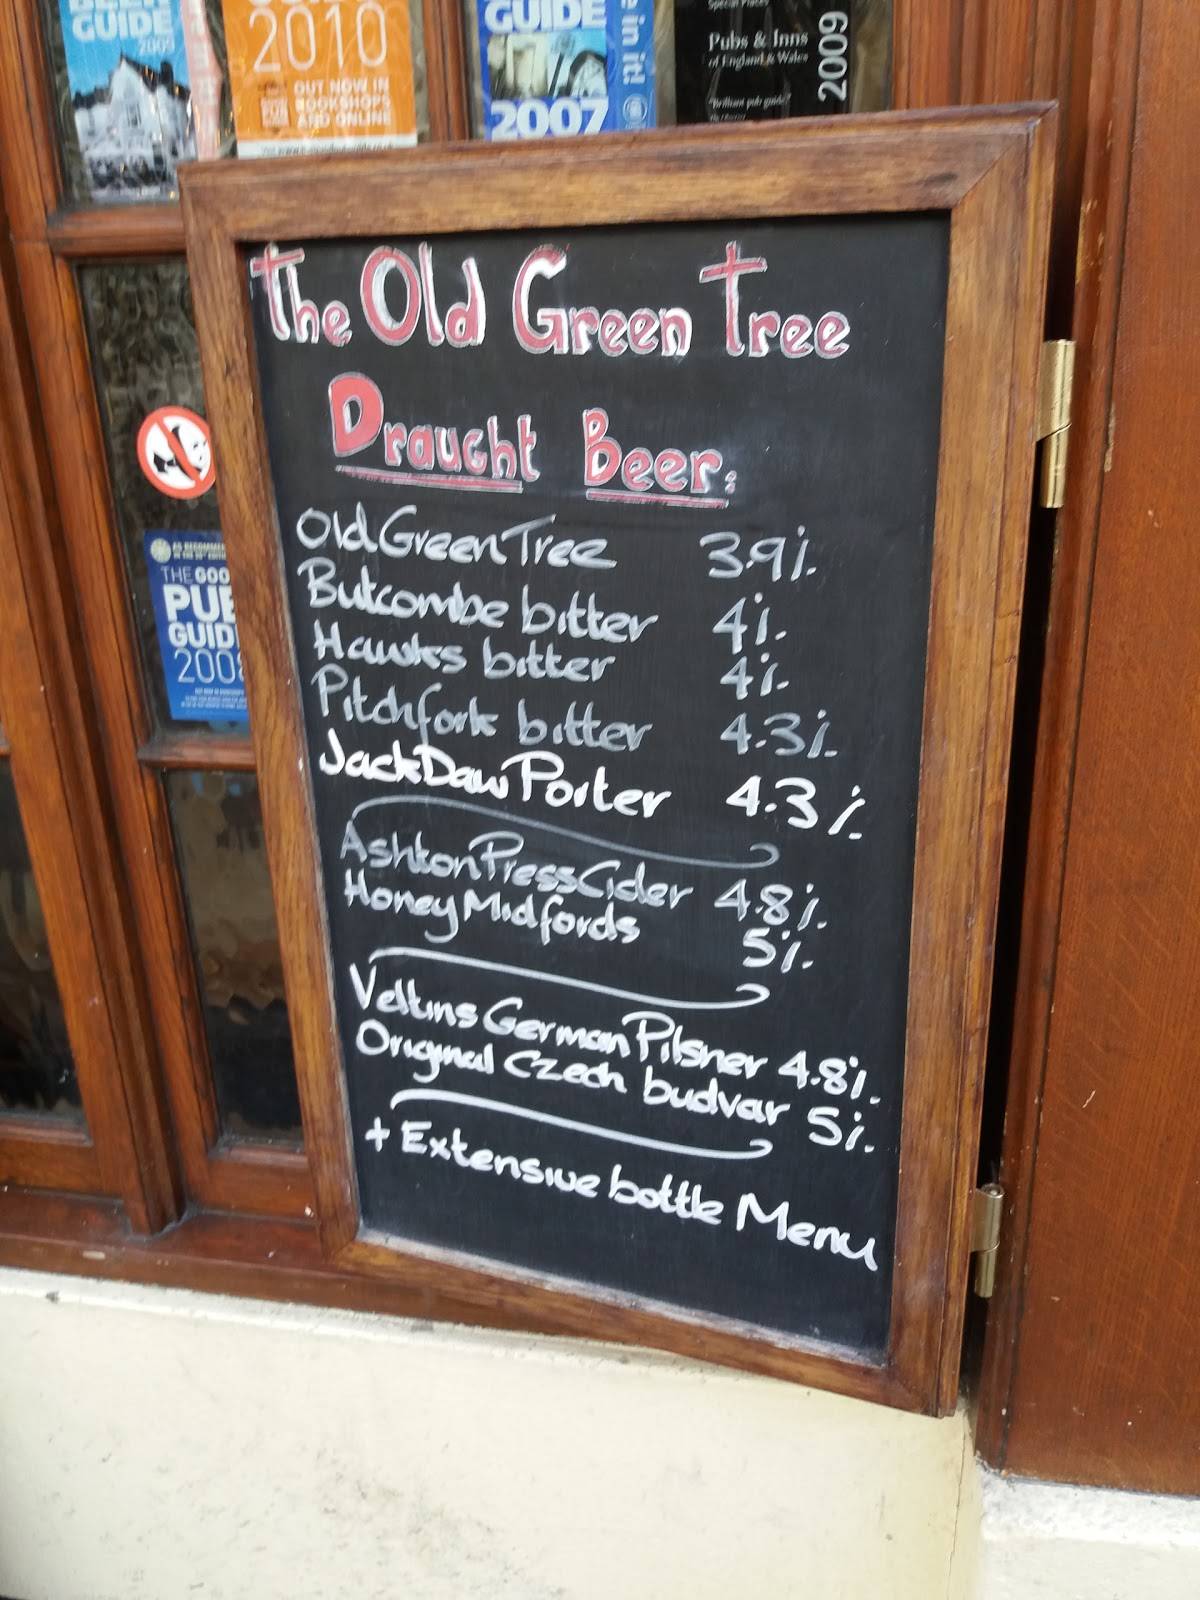 BEER
GUIDE
2009
2010
OUT NOW IN
BOOKSHOPS
AND ONLINE
GUIDE
2007
e in it!
Special Places
Pubs & Inns
of England & Wales
2009
"Brilliant pub guide"
THE GOO
PUB
GUID
2008
The Old Green Tree
Draught Beer:
Old Green Tree 3.9%
Butcombe bitter 4%
Hawks bitter 4%
Pitchfork bitter 4.3%
Jack Daw Porter 4.3%
Ashton Press Cider 4.8%
Honey Midfords 5%
Veltins German Pilsner 4.8%
Original Czech budvar 5%
+ Extensive bottle Menu